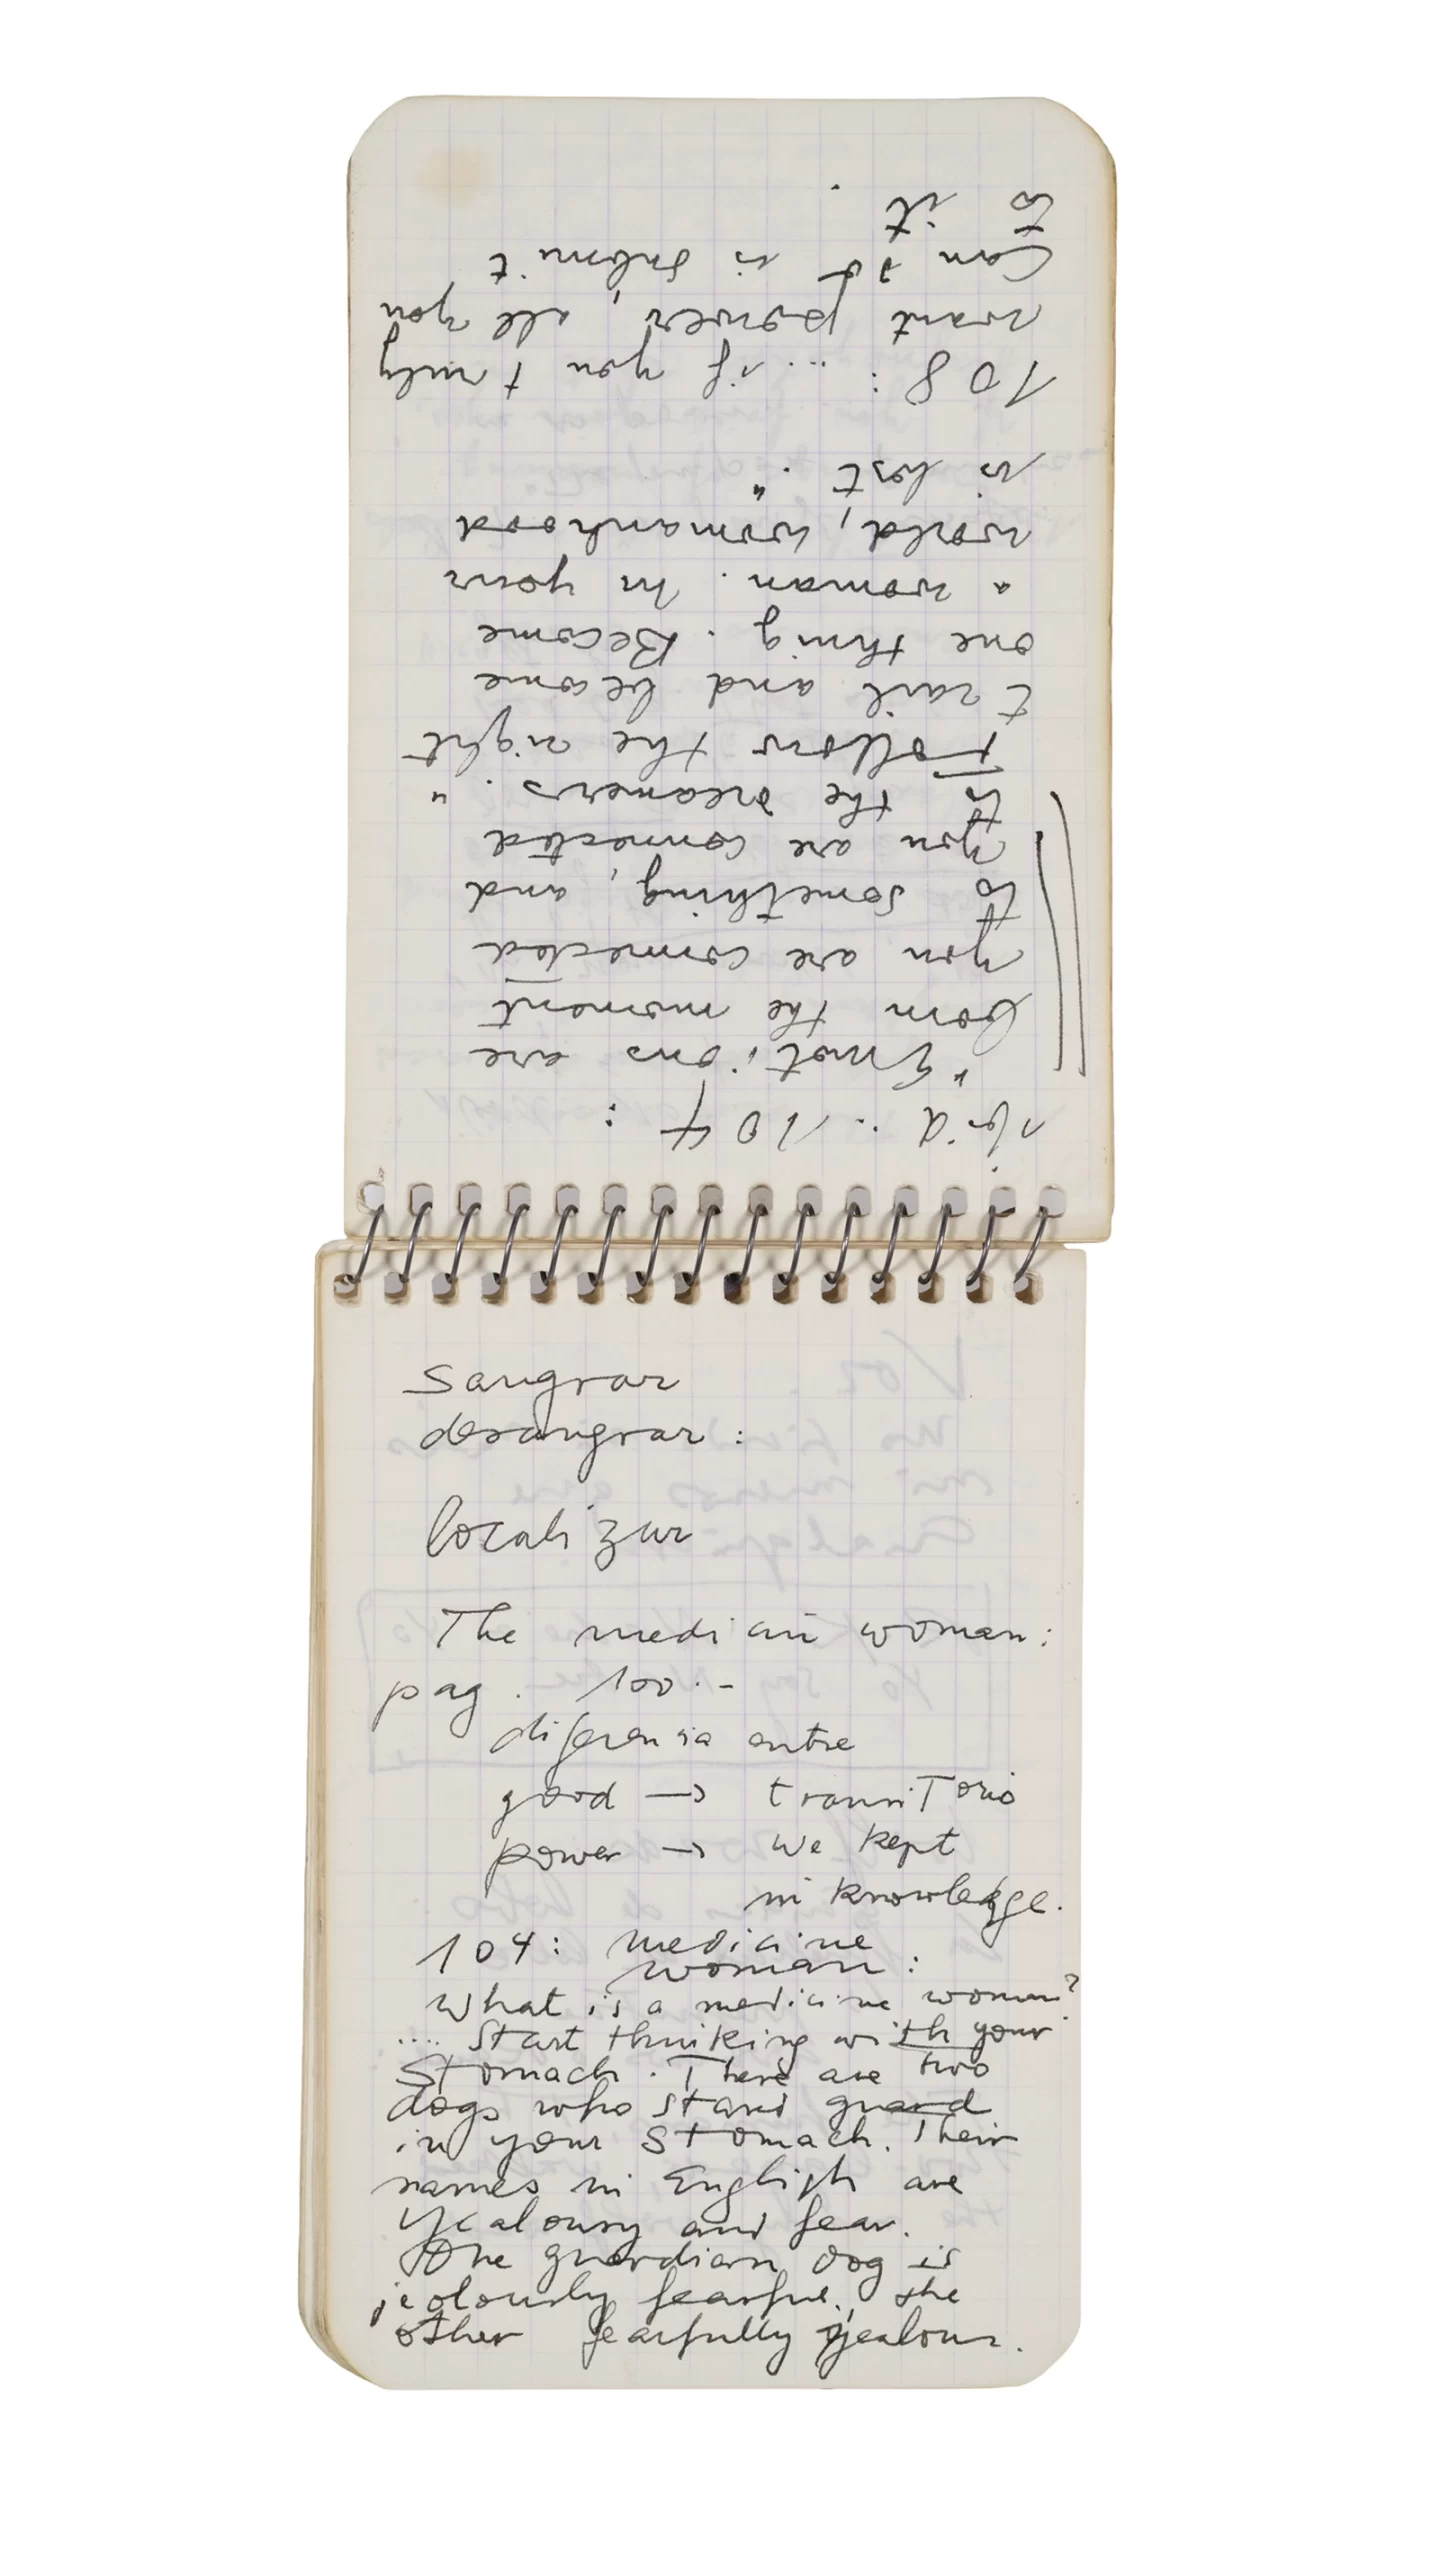 Sangrar
desangrar:
localizar
The medicin woman:
pag. 100.-
diferensia entre
good → transitorio
power → we kept
in knowledge.
104: medicine
woman:
What is a medicine woman?
.... Start thinking with your
stomach. There are two
dogs who stand guard
in your stomach. Their
names in English are
jealousy and fear.
One guardian dog is
jealously fearful, the
other fearfully jealous.
ibid: 104:
"Emotions are
born the moment
you are connected
to something, and
you are connected
to the dreamers."
Follow the right
trail and become
one thing. Become
a woman. In your
world, womanhood
is lost."
108: ... if you truly
want power, all you
can do is submit
to it.